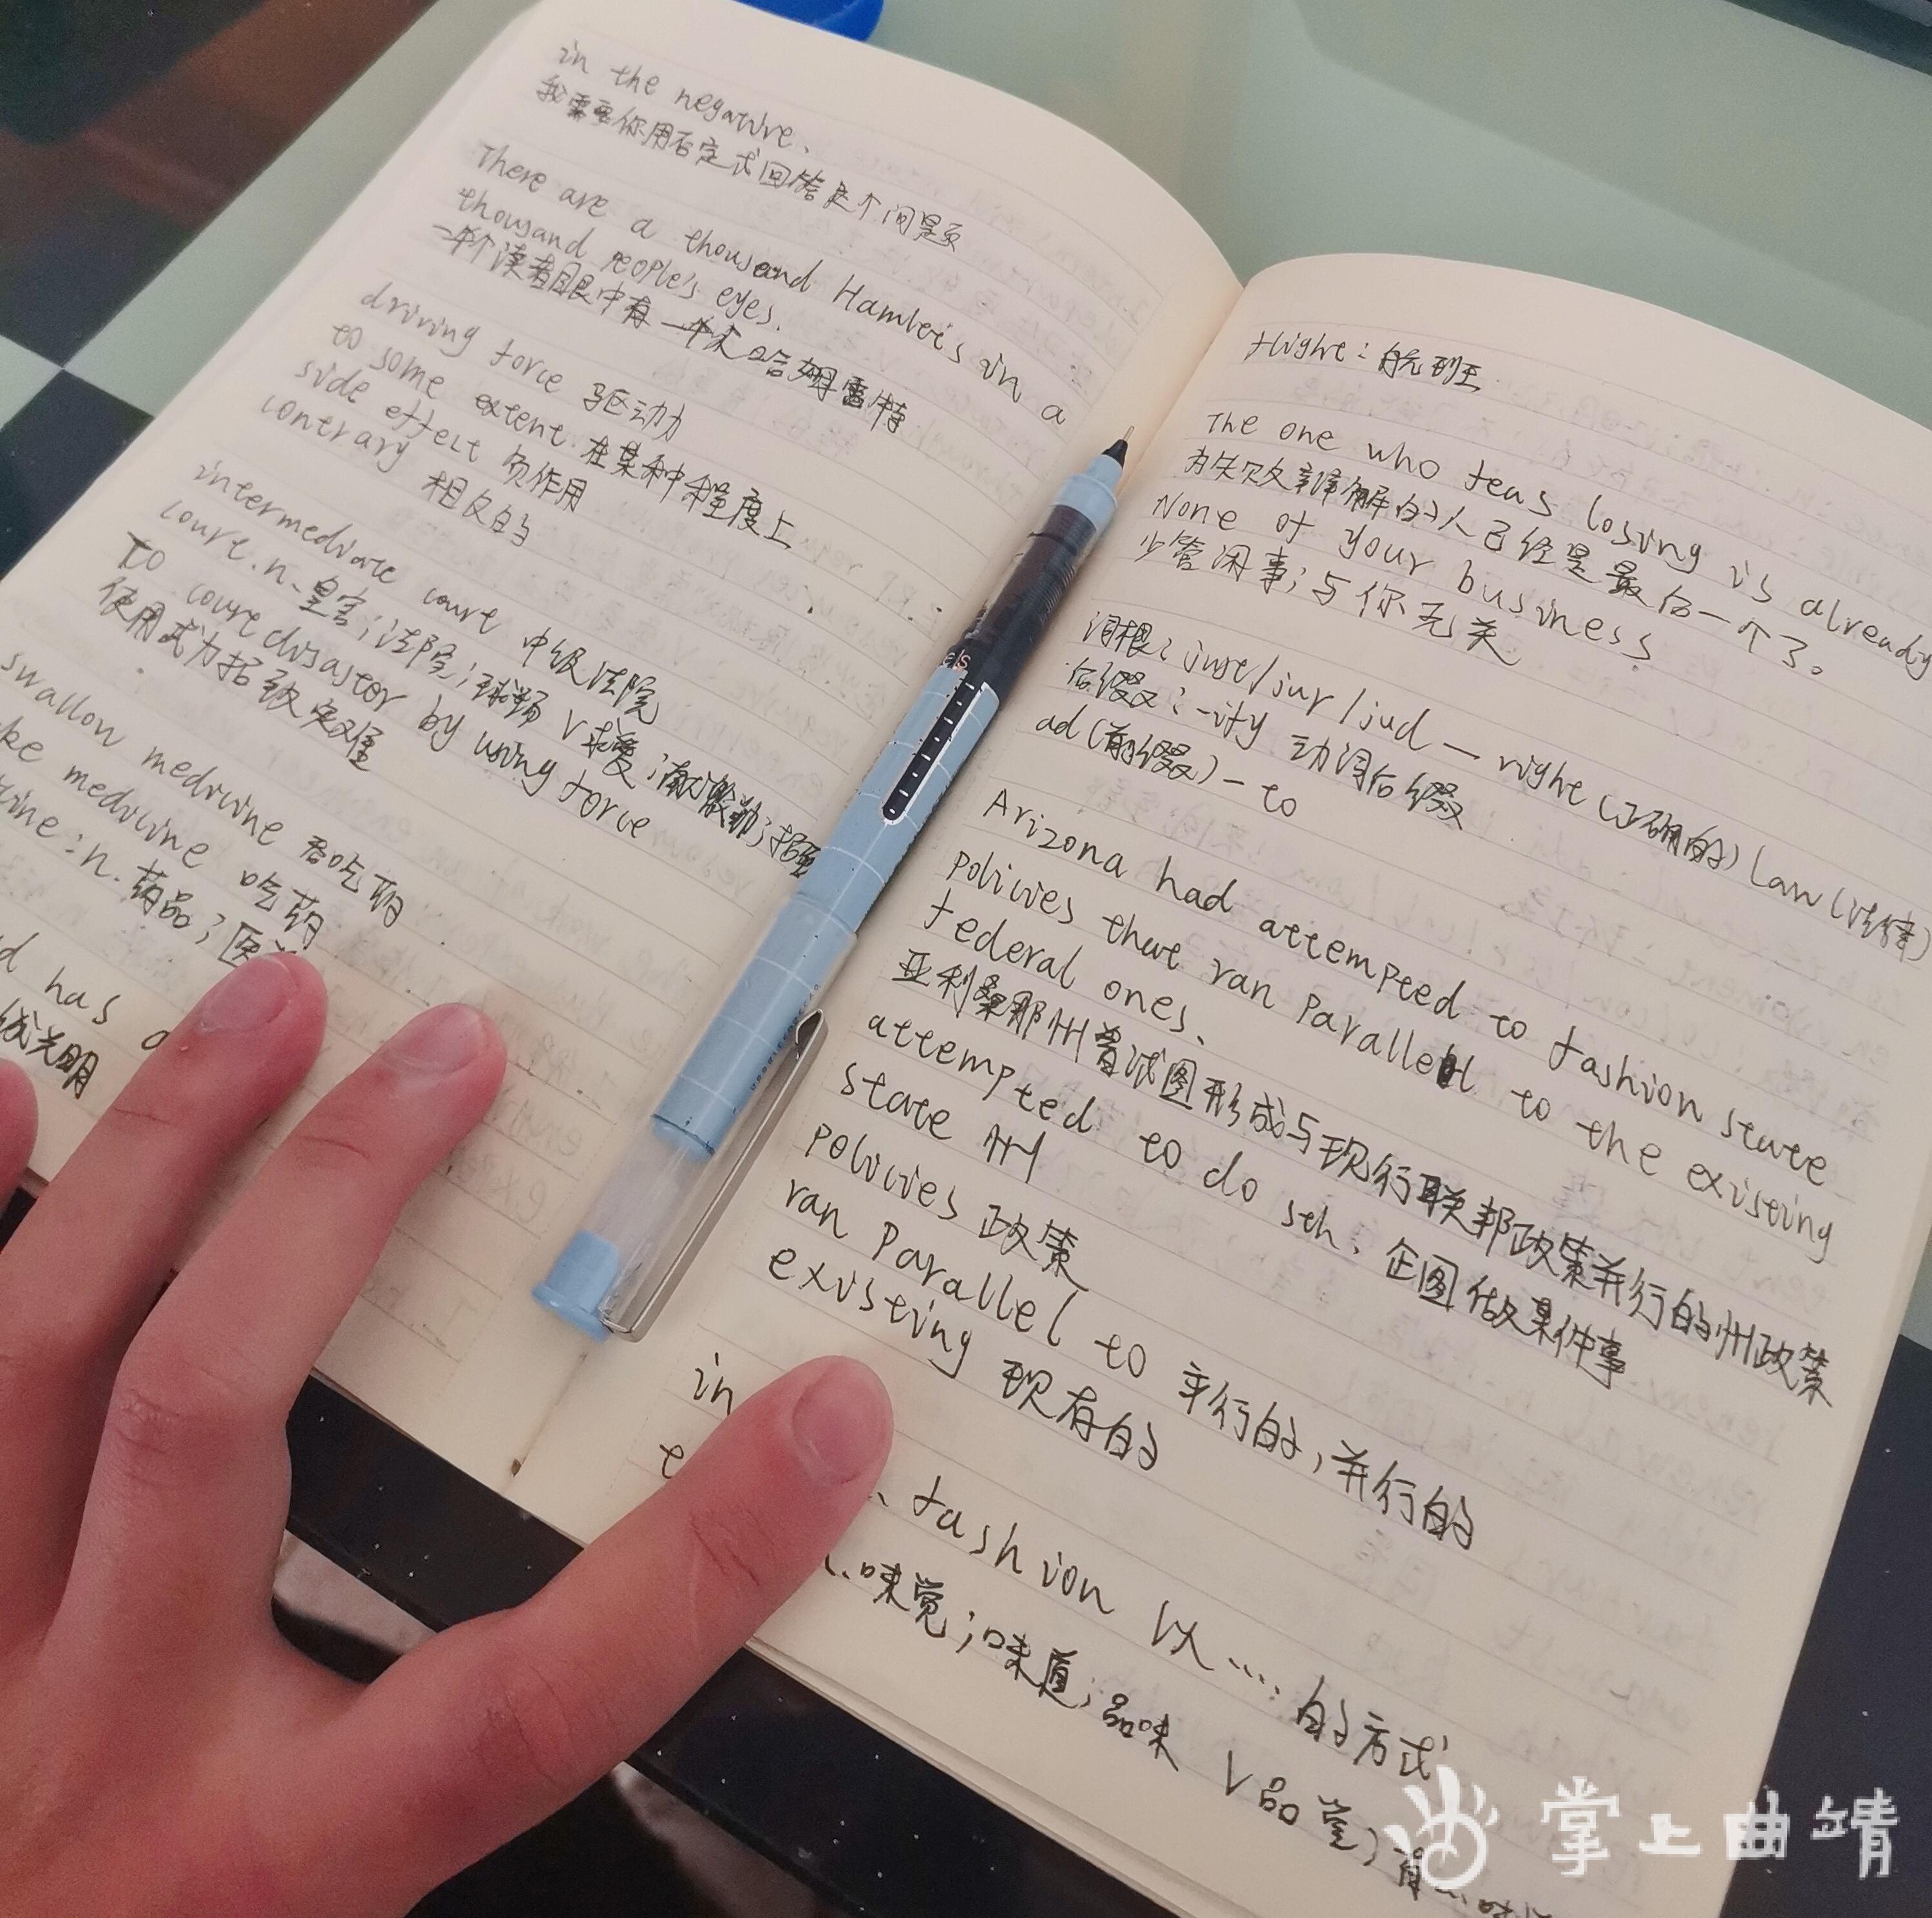 in the negative.
我需要你用否定式回答这个问题
There are a thousand Hamlets in a
thousand people's eyes.
一千个读者眼中有一千个哈姆雷特
driving force 驱动力
to some extent. 在某种程度上
side effect 负作用
contrary 相反的
intermediate court 中级法院
court. n. 皇宫；法院；球场 V 求爱；献殷勤；招致
to court disastor by using force
使用武力招致灾难
swallow medicine 吞吃药
ke medicine 吃药
cine: n. 药品；医
d has a
光明
flight: 航班
The one who feas losing is already
为失败辩解的人已经是最后一个了。
None of your business
少管闲事；与你无关
词根: just/jur/jud — right (正确的) law (法律)
后缀: -ify 动词后缀
ad (前缀) - to
Arizona had attempted to fashion state
policies that ran parallel to the existing
federal ones.
亚利桑那州曾试图形成与现行联邦政策并行的州政策
attempted to do sth. 企图做某件事
state 州
policies 政策
ran parallel to 平行的，并行的
existing 现有的
in
fashion 以…的方式
t
味觉；味道；品味 V 品尝；有
掌上曲靖